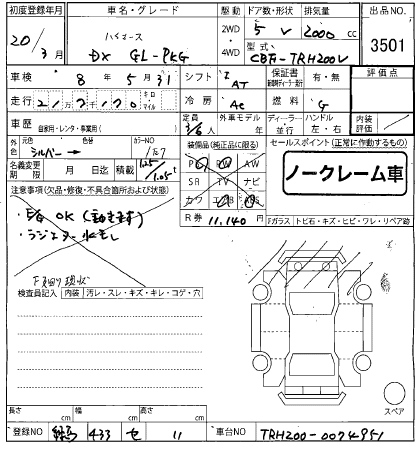 初度登録年月 車名・グレード 駆動 ドア数・形状 排気量 出品NO.
20/3月 ハイエース DX GL-PKG 2WD 4WD 5 V 2000 cc 3501
型式 CBA-TRH200V
車検 8年5月31日 シフト AT 保証書 有・無 評価点
走行 キロ マイル 冷房 AC 燃料 G
車歴 自家用・レンタ・事業用( ) 定員 3/6人 外車モデル 年 ディーラー 並行 ハンドル 左・右 内装評価
外色 元色 シルバー→ カラーNO 1E7 装備品(純正品に限る) セールスポイント(正常に作動するもの)
名義変更期限 月 日 積載 1.25/1.05t PS PW AW
SR TV ナビ
カワ
ノークレーム車
注意事項(欠品・修復・不具合箇所および状態)
・E/G OK(動きます)
・ラジエター水モレ
R券 11,140円
Fガラス トビ石・キズ・ヒビ・ワレ・リペア跡
下廻り現状
検査員記入 内装 汚レ・スレ・キズ・キレ・コゲ・穴
スペア
長さ cm 幅 cm 高さ cm
登録NO 433 せ 11 車台NO TRH200-0074951